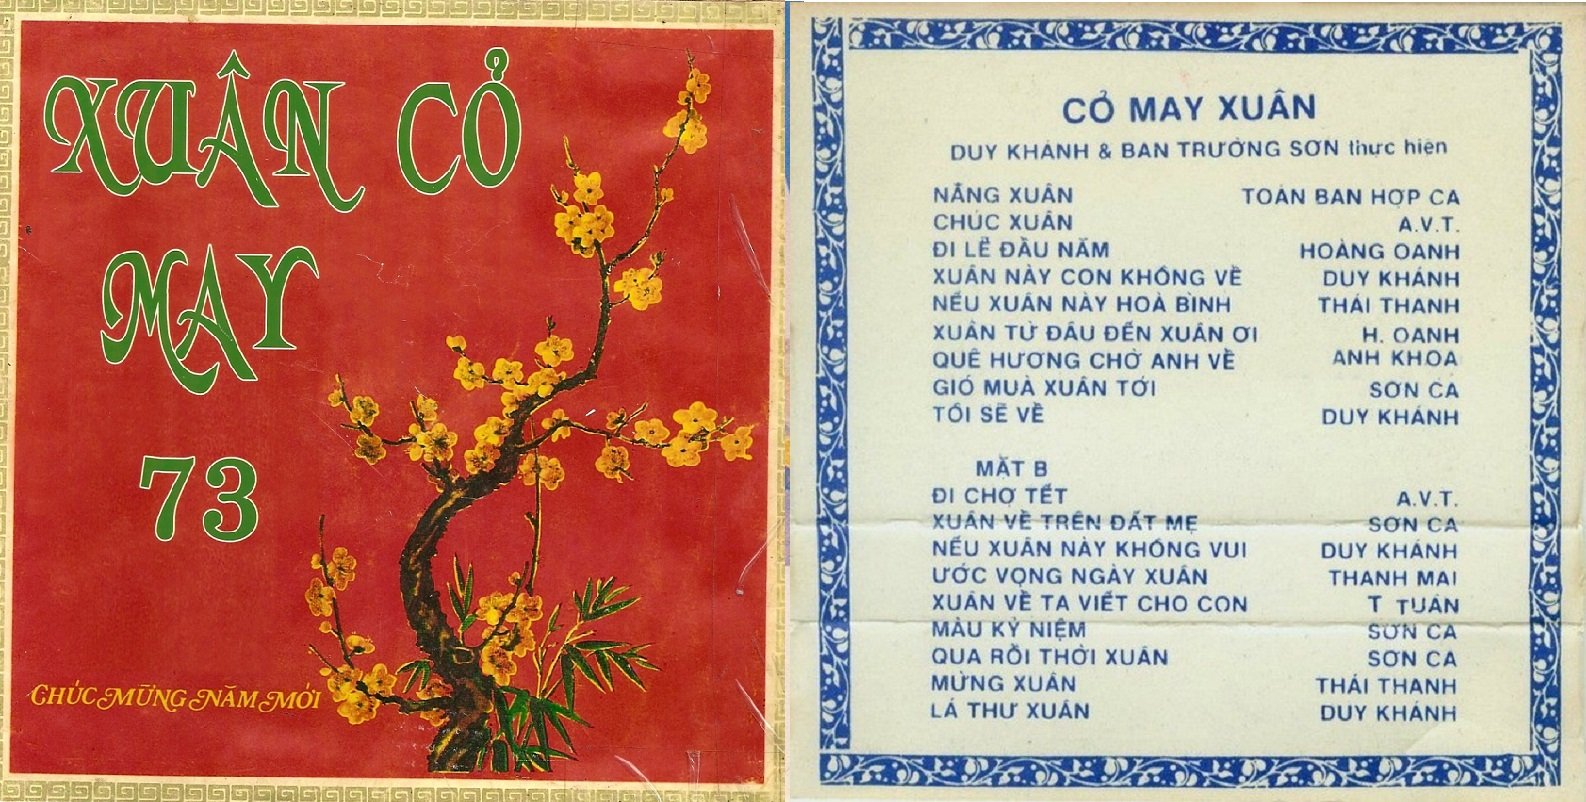 XUÂN CỎ
MAY
73
CHÚC MỪNG NĂM MỚI
CỎ MAY XUÂN
DUY KHÁNH & BAN TRƯỜNG SƠN thực hiện
NẮNG XUÂN TOÀN BAN HỢP CA
CHÚC XUÂN A.V.T.
ĐI LỄ ĐẦU NĂM HOÀNG OANH
XUÂN NÀY CON KHÔNG VỀ DUY KHÁNH
NẾU XUÂN NÀY HOÀ BÌNH THÁI THANH
XUÂN TỪ ĐÂU ĐẾN XUÂN ƠI H. OANH
QUÊ HƯƠNG CHỜ ANH VỀ ANH KHOA
GIÓ MUÀ XUÂN TỚI SƠN CA
TÔI SẼ VỀ DUY KHÁNH
MẶT B
ĐI CHỢ TẾT A.V.T.
XUÂN VỀ TRÊN ĐẤT MẸ SƠN CA
NẾU XUÂN NÀY KHÔNG VUI DUY KHÁNH
ƯỚC VỌNG NGÀY XUÂN THANH MAI
XUÂN VỀ TA VIẾT CHO CON T TUẤN
MÀU KỶ NIỆM SƠN CA
QUA RỒI THỜI XUÂN SƠN CA
MỪNG XUÂN THÁI THANH
LÁ THƯ XUÂN DUY KHÁNH